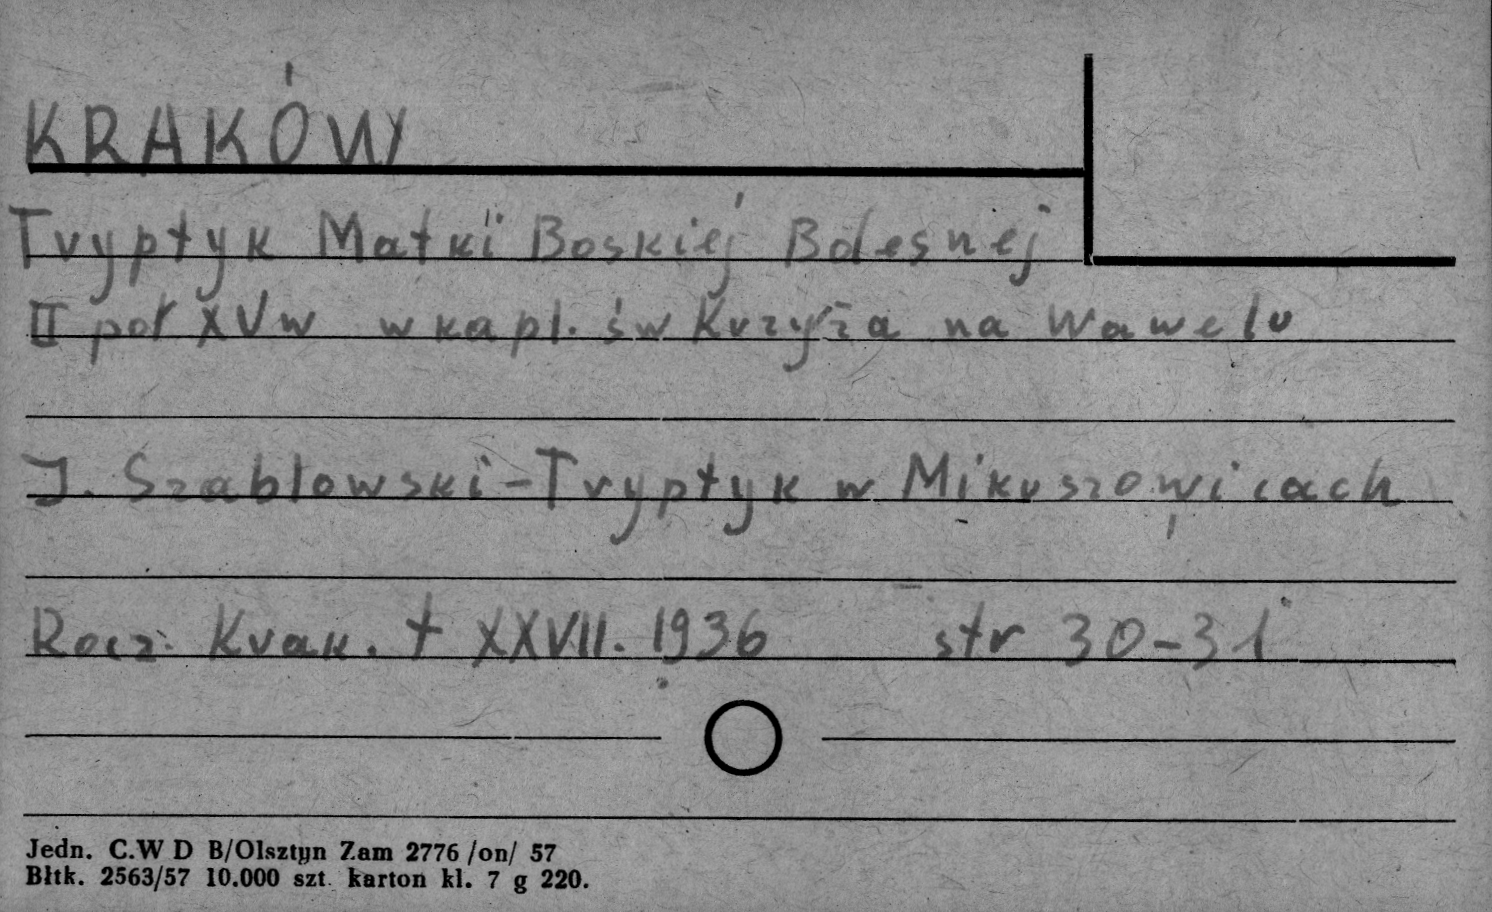 KRAKÓW
Tryptyk Matki Boskiej Bolesnej
II poł XV w w kapl. św Krzyża na Wawelu
J. Szablowski - Tryptyk w Mikuszowicach
Rocz. Krak. t XXVII. 1936 str 30-31
Jedn. C.W D B/Olsztyn Zam 2776 /on/ 57
Błtk. 2563/57 10.000 szt. karton kl. 7 g 220.